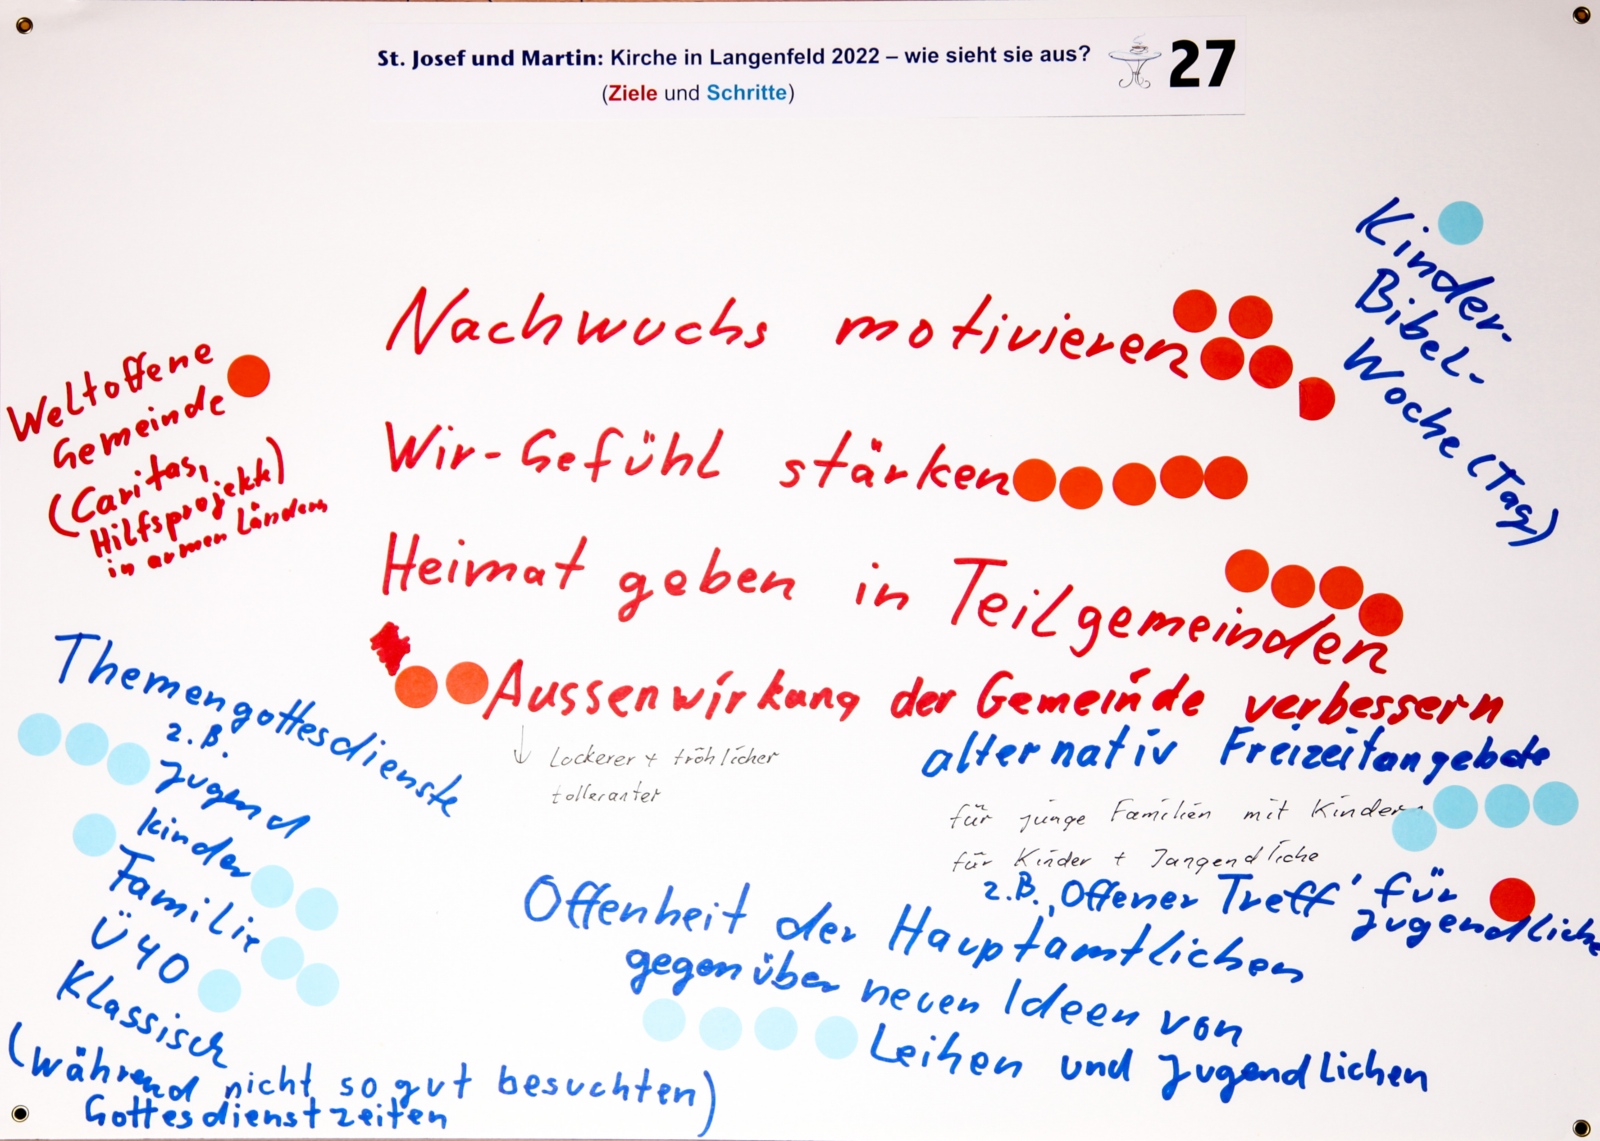 St. Josef und Martin: Kirche in Langenfeld 2022 – wie sieht sie aus?
(Ziele und Schritte)
27
Kinder-
Bibel-
Woche (Tag)
Nachwuchs motivieren
Weltoffene
Gemeinde
(Caritas,
Hilfsprojekte)
in armen Ländern
Wir-Gefühl stärken
Heimat geben in Teilgemeinden
Aussenwirkung der Gemeinde verbessern
↓ Lockerer + fröhlicher
tolleranter
alternativ Freizeitangebote
für junge Familien mit Kindern
für Kinder + Jungendliche
z.B. 'Offener Treff' für
Jugendliche
Themengottesdienste
z.B.
Jugend
Kinder
Familie
Ü40
Klassisch
(während nicht so gut besuchten)
Gottesdienstzeiten
Offenheit der Hauptamtlichen
gegenüber neuen Ideen von
Leihen und Jugendlichen